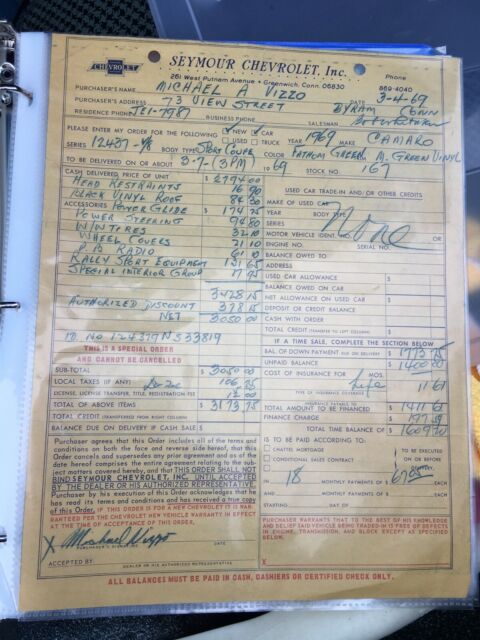 CHEVROLET
SEYMOUR CHEVROLET, Inc.
261 West Putnam Avenue • Greenwich, Conn. 06830
Phone
869-4040
PURCHASER'S NAME MICHAEL A VIZZO DATE 3-4-69
PURCHASER'S ADDRESS 73 VIEW STREET BYRAM CONN
RESIDENCE PHONE JE1-7987 BUSINESS PHONE SALESMAN
PLEASE ENTER MY ORDER FOR THE FOLLOWING NEW CAR YEAR 1969 MAKE CAMARO
USED TRUCK
SERIES 12437-V8 BODY TYPE SPORT COUPE COLOR FATHOM GREEN, M. GREEN VINYL
TO BE DELIVERED ON OR ABOUT 3-7-(3PM) 1969 STOCK NO. 167
CASH DELIVERED PRICE OF UNIT $ 2794.00
HEAD RESTRAINTS 16 90
BLACK VINYL ROOF 84 30
ACCESSORIES POWERGLIDE $ 174 25
POWER STEERING 94 80
W/W TIRES 32 10
WHEEL COVERS 21 10
PB RADIO 61 10
RALLY SPORT EQUIPMENT 131 65
SPECIAL INTERIOR GROUP 17 95
3428 15
AUTHORIZED DISCOUNT 378 15
NET 3050 00
ID NO 124379N533819
THIS IS A SPECIAL ORDER
AND CANNOT BE CANCELLED
SUB-TOTAL $ 3050 00
LOCAL TAXES (IF ANY) 106 75
LICENSE, LICENSE TRANSFER, TITLE, REGISTRATION FEE 17 00
TOTAL OF ABOVE ITEMS $ 3173 75
TOTAL CREDIT (TRANSFERRED FROM RIGHT COLUMN)
BALANCE DUE ON DELIVERY IF CASH SALE $
Purchaser agrees that this Order includes all of the terms and
conditions on both the face and reverse side hereof, that this
Order cancels and supersedes any prior agreement and as of the
date hereof comprises the entire agreement relating to the sub-
ject matters covered hereby, and that THIS ORDER SHALL NOT
BIND SEYMOUR CHEVROLET, INC. UNTIL ACCEPTED
BY THE DEALER OR HIS AUTHORIZED REPRESENTATIVE.
Purchaser by his execution of this Order acknowledges that he
has read its terms and conditions and has received a true copy
of this Order. IF THIS ORDER IS FOR A NEW VEHICLE IT IS WAR-
RANTEED PER THE CHEVROLET NEW VEHICLE WARRANTY IN EFFECT
AT THE TIME OF ACCEPTANCE OF THIS ORDER.
X Michael Vizzo
PURCHASER'S SIGNATURE DATE
ACCEPTED BY:
DEALER OR HIS AUTHORIZED REPRESENTATIVE
USED CAR TRADE-IN AND/OR OTHER CREDITS
MAKE OF USED CAR
YEAR BODY TYPE
SERIES None
MOTOR VEHICLE IDENT. NO.
ENGINE NO. SERIAL NO.
BALANCE OWED TO
ADDRESS
USED CAR ALLOWANCE $
BALANCE OWED ON CAR
NET ALLOWANCE ON USED CAR $
DEPOSIT OR CREDIT BALANCE
CASH WITH ORDER
TOTAL CREDIT (TRANSFER TO LEFT COLUMN) $
IF A TIME SALE, COMPLETE THE SECTION BELOW
BAL. OF DOWN PAYMENT DUE ON DELIVERY $ 1773 75
UNPAID BALANCE $ 1400 00
COST OF INSURANCE FOR MOS.
Life 11 61
TYPE OF INSURANCE COVERAGE
INSURANCE PAYABLE TO
TOTAL AMOUNT TO BE FINANCED $ 1411 61
FINANCE CHARGE
TOTAL TIME BALANCE OF $ 1609 20
IS TO BE PAID ACCORDING TO:
CHATTEL MORTGAGE TO BE EXECUTED
CONDITIONAL SALES CONTRACT ON OR BEFORE
IN 18 MONTHLY PAYMENTS OF $ EACH
AND MONTHLY PAYMENTS OF $ EACH
STARTING DAY OF
PURCHASER WARRANTS THAT TO THE BEST OF HIS KNOWLEDGE
AND BELIEF SAID VEHICLE BEING TRADED-IN IS FREE OF DEFECTS
IN ENGINE, TRANSMISSION, AND BLOCK EXCEPT AS SPECIFIED
BELOW.
X
ALL BALANCES MUST BE PAID IN CASH, CASHIERS OR CERTIFIED CHECK ONLY.